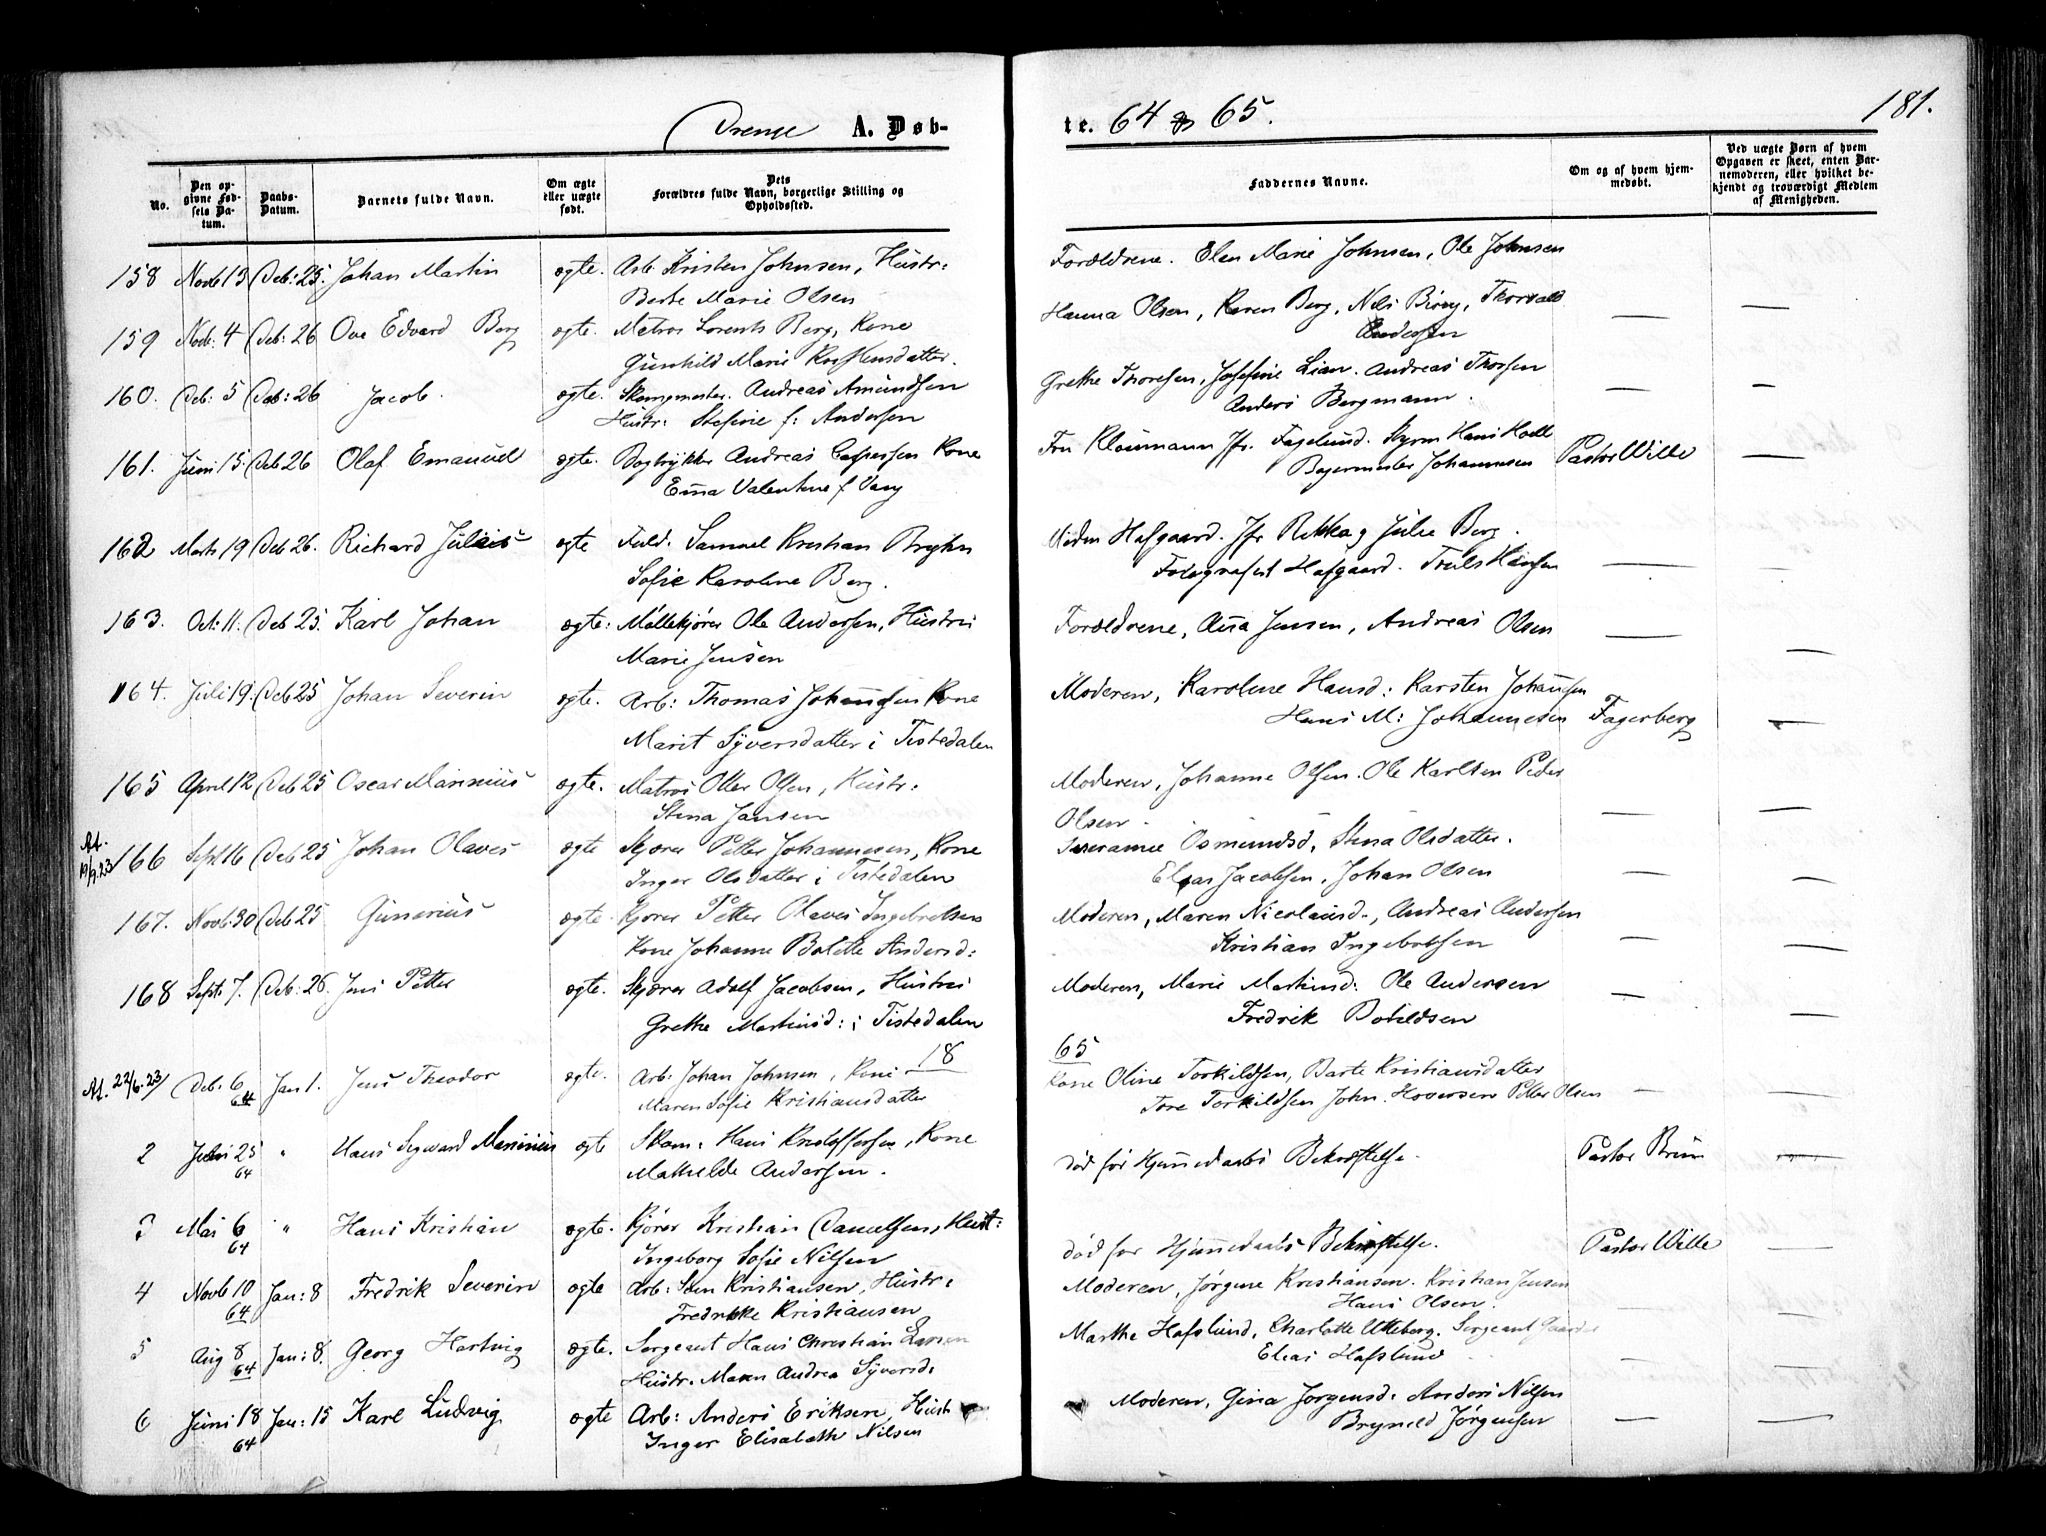 Drenge A. Døb-
te. 64 & 65.
181.
No.
Den opgivne Fødsels Datum.
Daabs-Datum.
Barnets fulde Navn.
Om ægte eller uægte født.
Dets Forældres fulde Navn, borgerlige Stilling og Opholdssted.
Faddernes Navne.
Om og af hvem hjemmedøbt.
Ved uægte Børn af hvem Opgaven er skeet, enten Barnemoderen, eller hvilket bekjendt og troværdigt Medlem af Menigheden.
158 Novb 13 Deb: 25. Johan Martin ægte. Arb Kristen Johnsen, Hustr: Forældrene. Elen Marie Johnsen, Ole Johnsen
Berte Marie Olsen
159 Novb. 4 Deb: 26 Ove Edvard Berg ægte. Matros Lorents Berg, Kone Hanna Olsen, Karen Berg, Nels Berg, Thorvald — —
Gunhild Marie Andersen
160. Deb: 5 Deb: 26 Jacob. ægte. Andreas Amundsen Grethe Thoresen, Josefine Lian. Andreas Thorsen — —
Hustr: Stefine f: Andersen Anders Bergmann.
161. Juni 15. Deb 26 Olaf Emanuel ægte. Bogtrykker Andreas Caspersen Kone Fru Kloumann Jfr. Fagelund. Styrm Hans Pastor Wille —
Ema Valentine f Vang Bagermester Johannesen
162 Marts 19 Deb 26. Richard Julius ægte Fuld: Samuel Kristian Bryhn Hafgaard. Jfr Rikka og Julie Berg.
Sofie Karoline Berg. Fotografist Hafgaard. Truls Hansen — —
163. Oct: 11. Deb 25. Karl Johan ægte: Møllekjører Ole Andersen, Hustru Forældrene, Ana Jensen, Andreas Olsen —
Marie Jensen —
164. Juli 19. Deb 25 Johan Severin ægte. Arb: Thomas Johannesen Kone Moderen, Karoline Hansd: Karsten Johansen
Marit Syversdatter i Tistedalen Hans M: Johannesen Fagerberg —
165 April 12 Deb 25 Oscar Marinius ægte. Matros Otter Olsen, Hustr: Moderen, Johanne Olsen. Ole Karlsen Peder
Stina Jansen Olsen — —
At. 19/9.23 166 Sept 16 Deb 25 Johan Olaves ægte Skjører Petter Johannesen, Kone Osmundsd, Stina Olsdatter.
Inger Olsdatter i Tistedalen Elias Jacobsen, Johan Olsen — —
167. Novb: 30 Deb 25 Gunerius ægte. Kjører Petter Olaves Ingebretsen Moderen, Maren Nicolausd., Andreas Andersen
Kone Johanne Bolette Andersd: Kristian Ingebretsen — —
168 Sept: 7. Deb: 26. Jens Petter ægte. Skjører Adolf Jacobsen, Hustru Moderen, Marie Martinsd: Ole Andersen —
Grethe Martinsd: i Tistedalen Fredrik Botildsen —
18
65
At. 22/6.23 Deb. 6 64 Jan 1. Jens Theodor ægte. Arb: Johan Johnsen, Kone Kone Oline Torkildsen, Barte Kristiansdatter
Maren Sofie Kristiansdatter Tore Torkildsen John. Hoversen Petter Olsen — —
2 Juli 25 64 " Hans Sigward Marinius ægte Skom: Hans Kristoffersen, Kone død før Hjemedaabs Bekræftelse. Pastor Brun —
Mathilde Andersen.
3 Mai 6 64 " Hans Kristian ægte. Kjører Kristian Danielsen, Hust: død før Hjemedaabs Bekræftelse. Pastor Wille —
Ingeborg Sofie Nilsen
4 Novb 10 64 Jan: 8 Fredrik Severin ægte Arb: Sten Kristiansen, Hustr: Moderen, Jørgine Kristiansen. Kristian Jensen
Fredrikke Kristiansen Hans Olsen. —
5 Aug 8 64 Jan: 8. Georg Hartvig ægte. Sergeant Hans Christian Larsen Marthe Hafslund, Charlotte Utteberg. Sergeant
Hustr. Maren Andrea Syversd: Elias Hafslund — —
6 Juni 18 64 Jan: 15 Karl Ludvig ægte Arb: Anders Eriksen, Hustr Moderen, Gina Jørgensd: Anders Nilsen
Inger Elisabeth Nilsen Bryneld Jørgensen — —